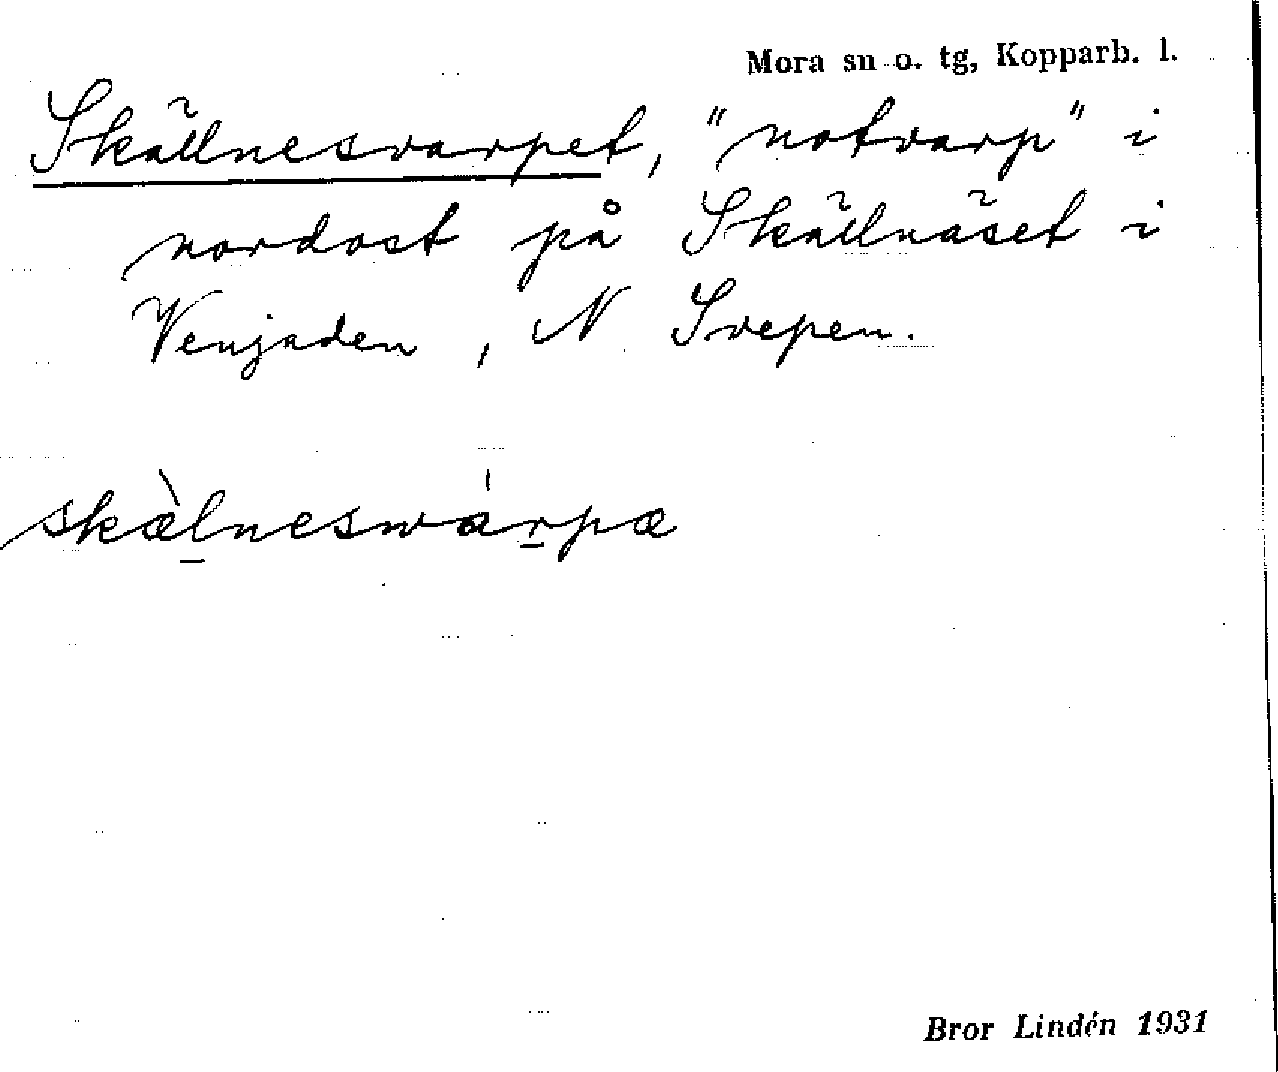 Mora sn o. tg, Kopparb. l.
Skällnesvarpet, "notvarp" i
nordost på Skällnäset i
Venjaden, N Svepen.
skæ̀lneswárpæ
Bror Lindén 1931